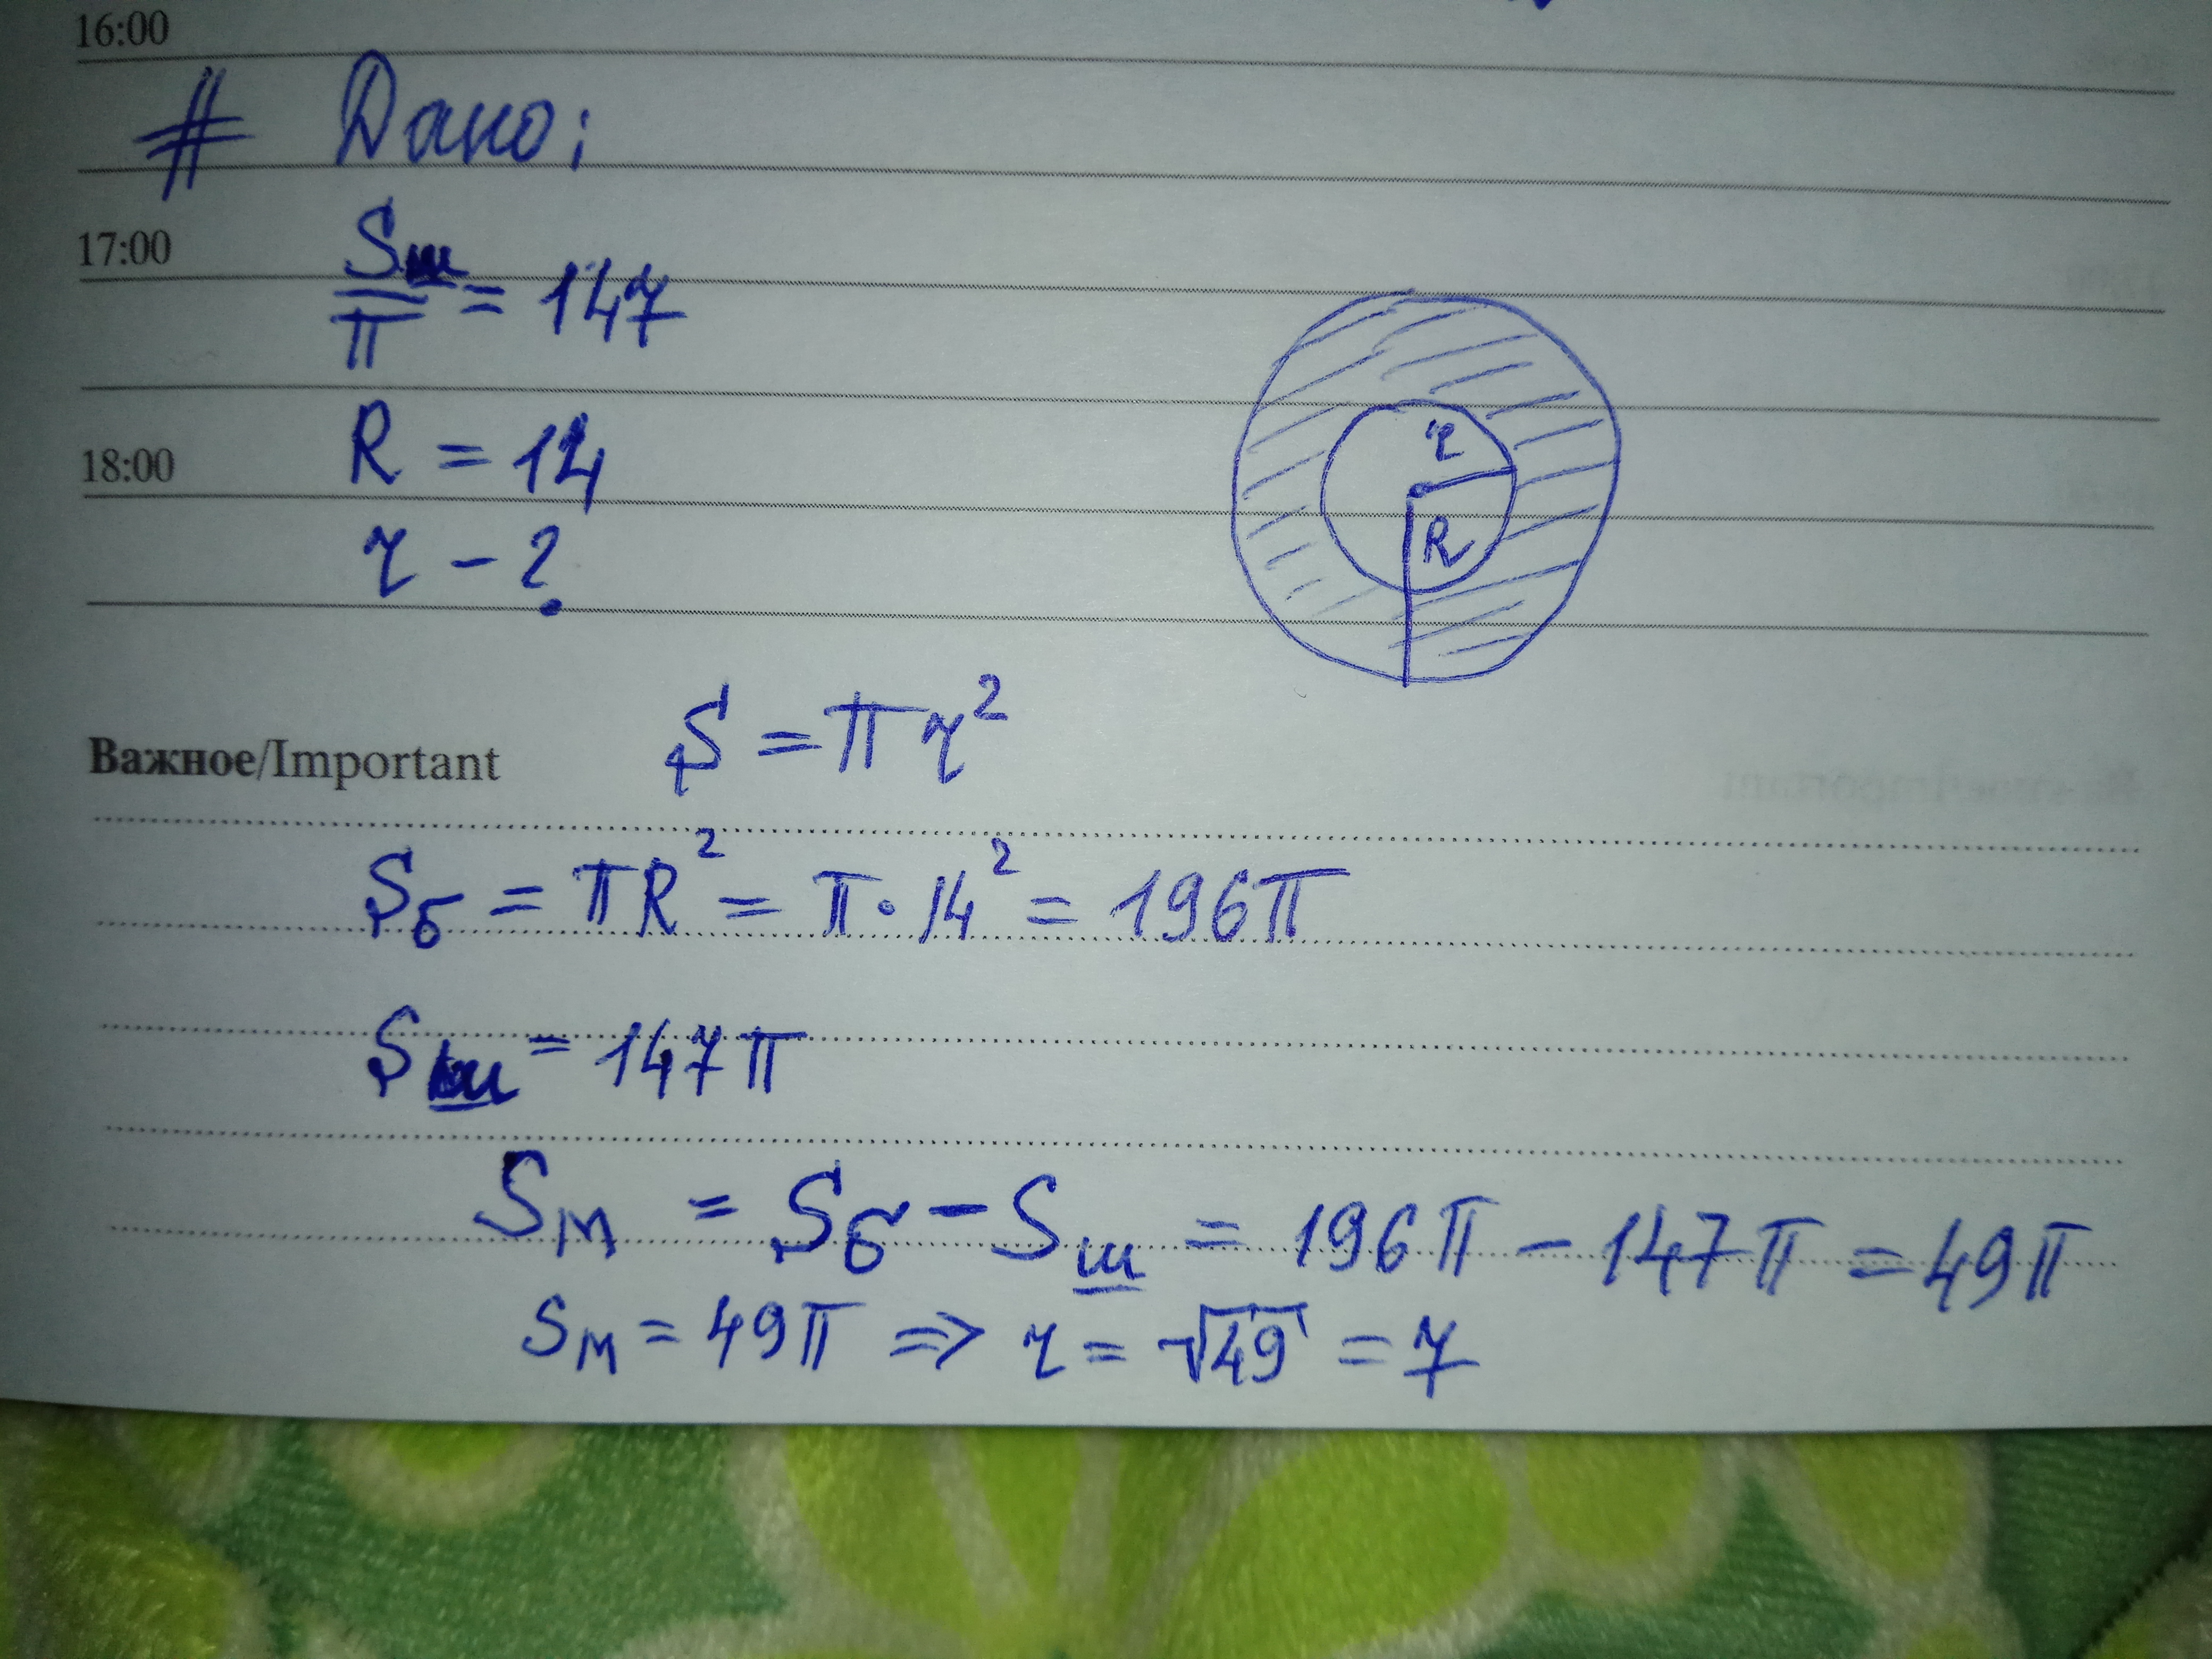 16:00
# Дано:
17:00
Sш/π = 147
18:00
R = 14
r - ?
r
R
Важное/Important
S = πr²
Sб = πR² = π · 14² = 196π
Sш = 147π
Sм = Sб - Sш = 196π - 147π = 49π
Sм = 49π => r = √49 = 7